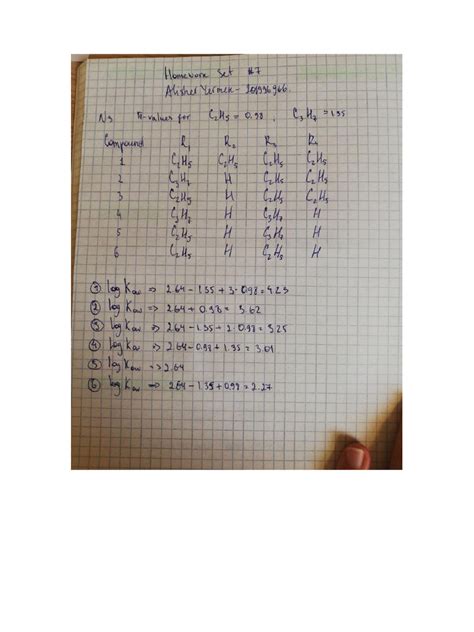 Homework Set #7
Alisher Yermek - 201996966.
N3 π-values for C₂H₅ = 0.98, C₃H₇ = 1.35
Compound R₁ R₂ R₃ R₄
1 C₂H₅ C₂H₅ C₂H₅ C₂H₅
2 C₃H₇ H C₂H₅ C₂H₅
3 C₂H₅ H C₂H₅ C₂H₅
4 C₃H₇ H C₃H₇ H
5 C₂H₅ H C₃H₇ H
6 C₂H₅ H C₂H₅ H
① log Kow => 2.64 - 1.35 + 3·0.98 = 4.23
② log Kow => 2.64 + 0.98 = 3.62
③ log Kow => 2.64 - 1.35 + 2·0.98 = 3.25
④ log Kow => 2.64 - 0.98 + 1.35 = 3.01
⑤ log Kow => 2.64
⑥ log Kow => 2.64 - 1.35 + 0.98 = 2.27